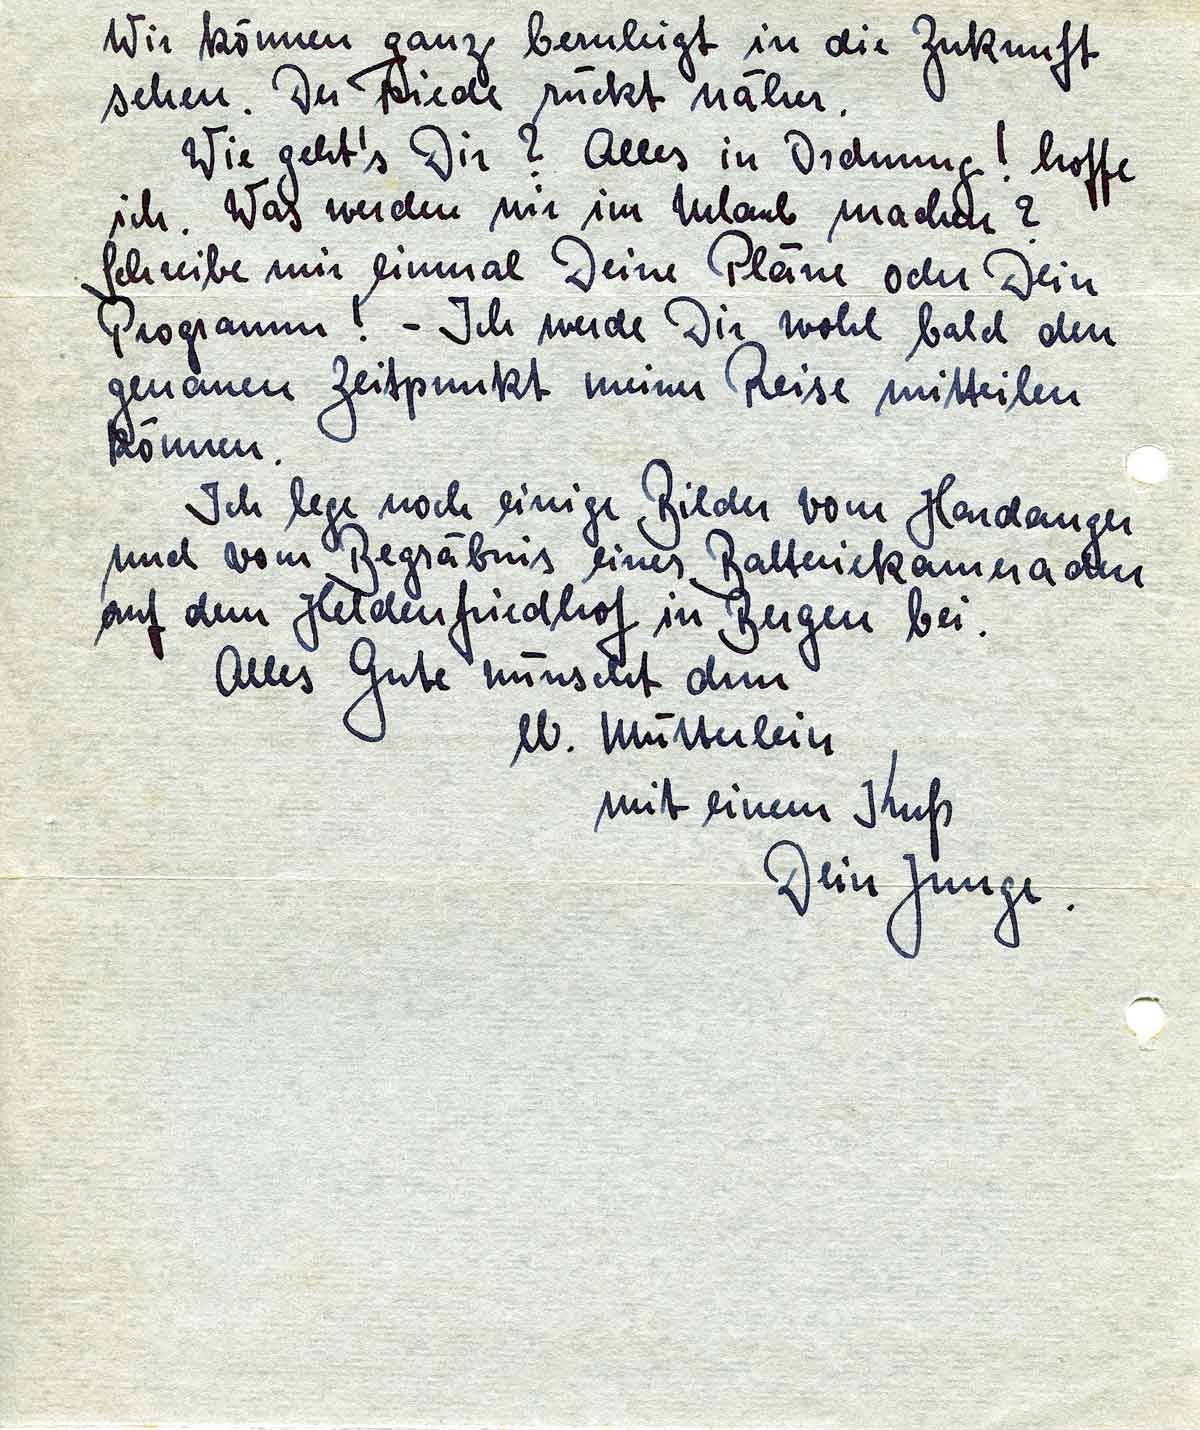 Wir können ganz beruhigt in die Zukunft
sehen. Der Friede rückt näher.
Wie geht's Dir? Alles in Ordnung! hoffe
ich. Was werden wir im Urlaub machen?
Schreibe mir einmal Deine Pläne oder Dein
Programm! - Ich werde Dir wohl bald den
genauen Zeitpunkt meiner Reise mitteilen
können.
Ich lege noch einige Bilder vom Hardanger
und vom Begräbnis eines Batteriekameraden
auf dem Heldenfriedhof in Bergen bei.
Alles Gute wünscht dem
lb. Mütterlein
mit einem Kuß
Dein Junge.